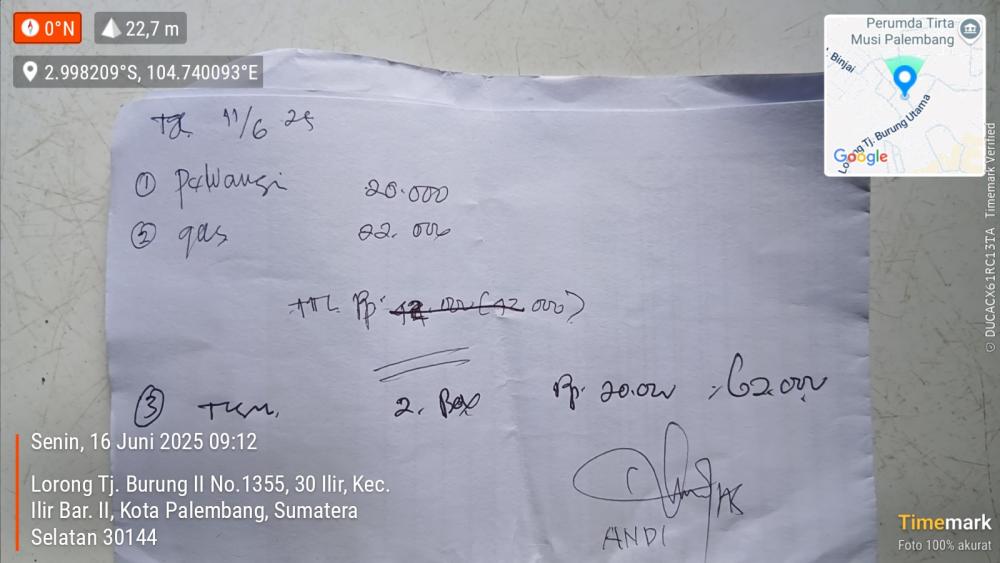 0°N 22,7 m
2.998209°S, 104.740093°E
Perumda Tirta
Musi Palembang
Binjai
Lorong Tj. Burung Utama
Google
Tgl 11/6 25
① Pewangi 20.000
② gas 22.000
TTL Rp. 42.000 (42.000)
③ 2. Box Rp. 20.000 62.000
ANDI
Senin, 16 Juni 2025 09:12
Lorong Tj. Burung II No.1355, 30 Ilir, Kec.
Ilir Bar. II, Kota Palembang, Sumatera
Selatan 30144
© DUCACX61RC13TA Timemark Verified
Timemark
Foto 100% akurat